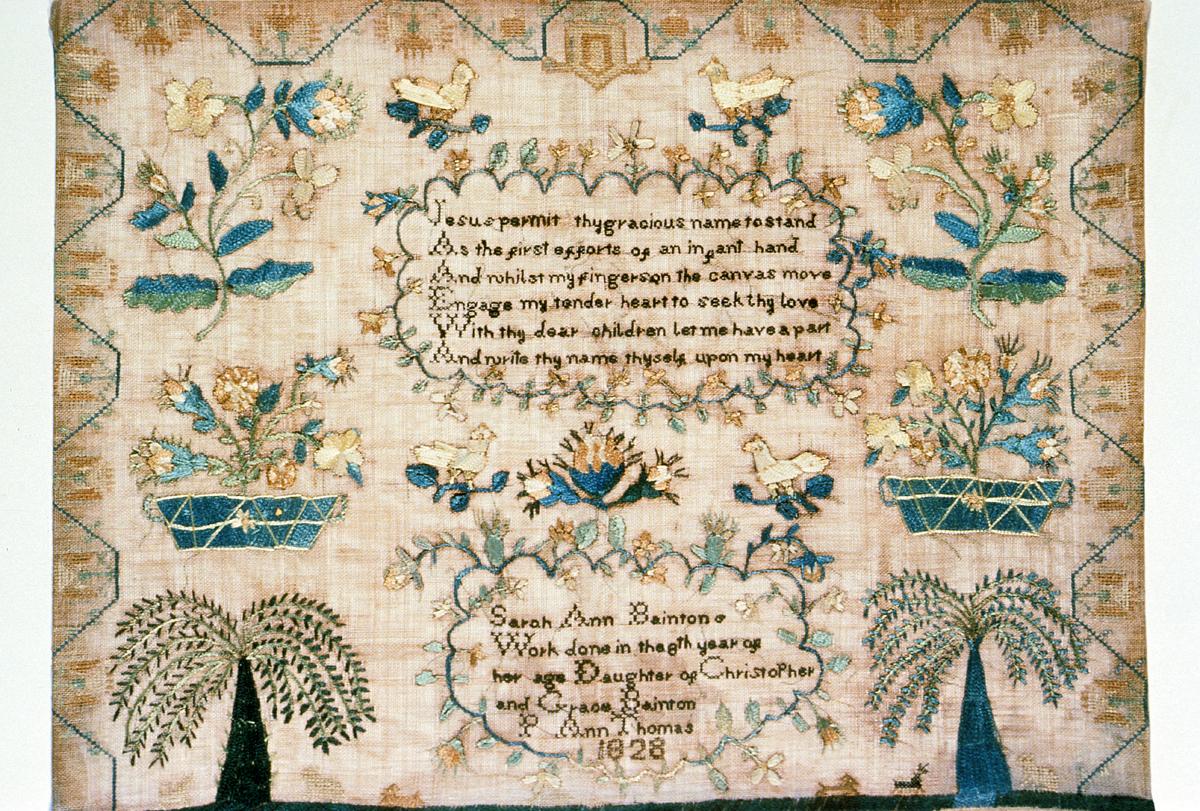 Jesus permit thy gracious name to stand
As the first efforts of an infant hand
And whilst my fingers on the canvas move
Engage my tender heart to seek thy love
With thy dear children let me have a part
And write thy name thyself upon my heart
Sarah Ann Bainton
Work done in the 8th year of
her age Daughter of Christopher
and Grace Bainton
P Ann Thomas
1828